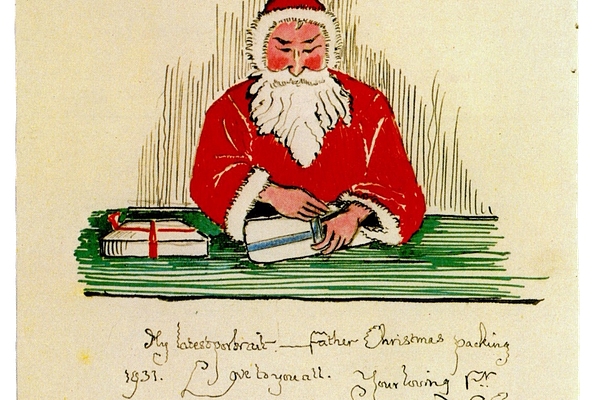 My latest portrait. — Father Christmas packing
1931. Love to you all. Your loving Fr.